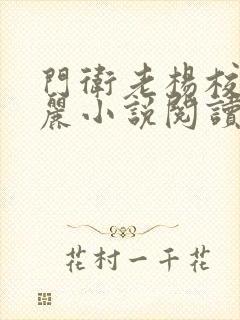 門衛老楊校
麗小說閱讀
花村一千花